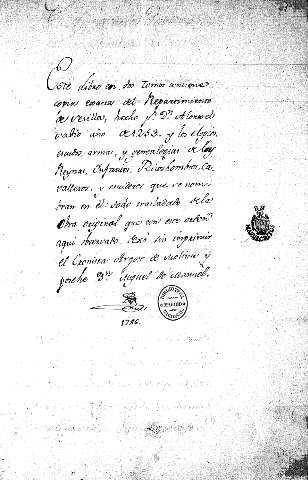 Este libro en dos tomos contiene
copia exacta del Repartimiento
de Sevilla, hecho pr. Dn. Alonso el
Sabio año de 1253. y los elogios,
escudos, armas, y genealogias de los
Reynas, Infantes, Ricoshombres, Ca-
valleros, y escuderos que se nom-
bran en él: todo trasladado de la
obra original que con este orden
aqui observado dexó sin imprimir
el Cronista Argote de Molina y
posehe Dn. Miguel de Manuel.
1786.
BIBLIOTECA